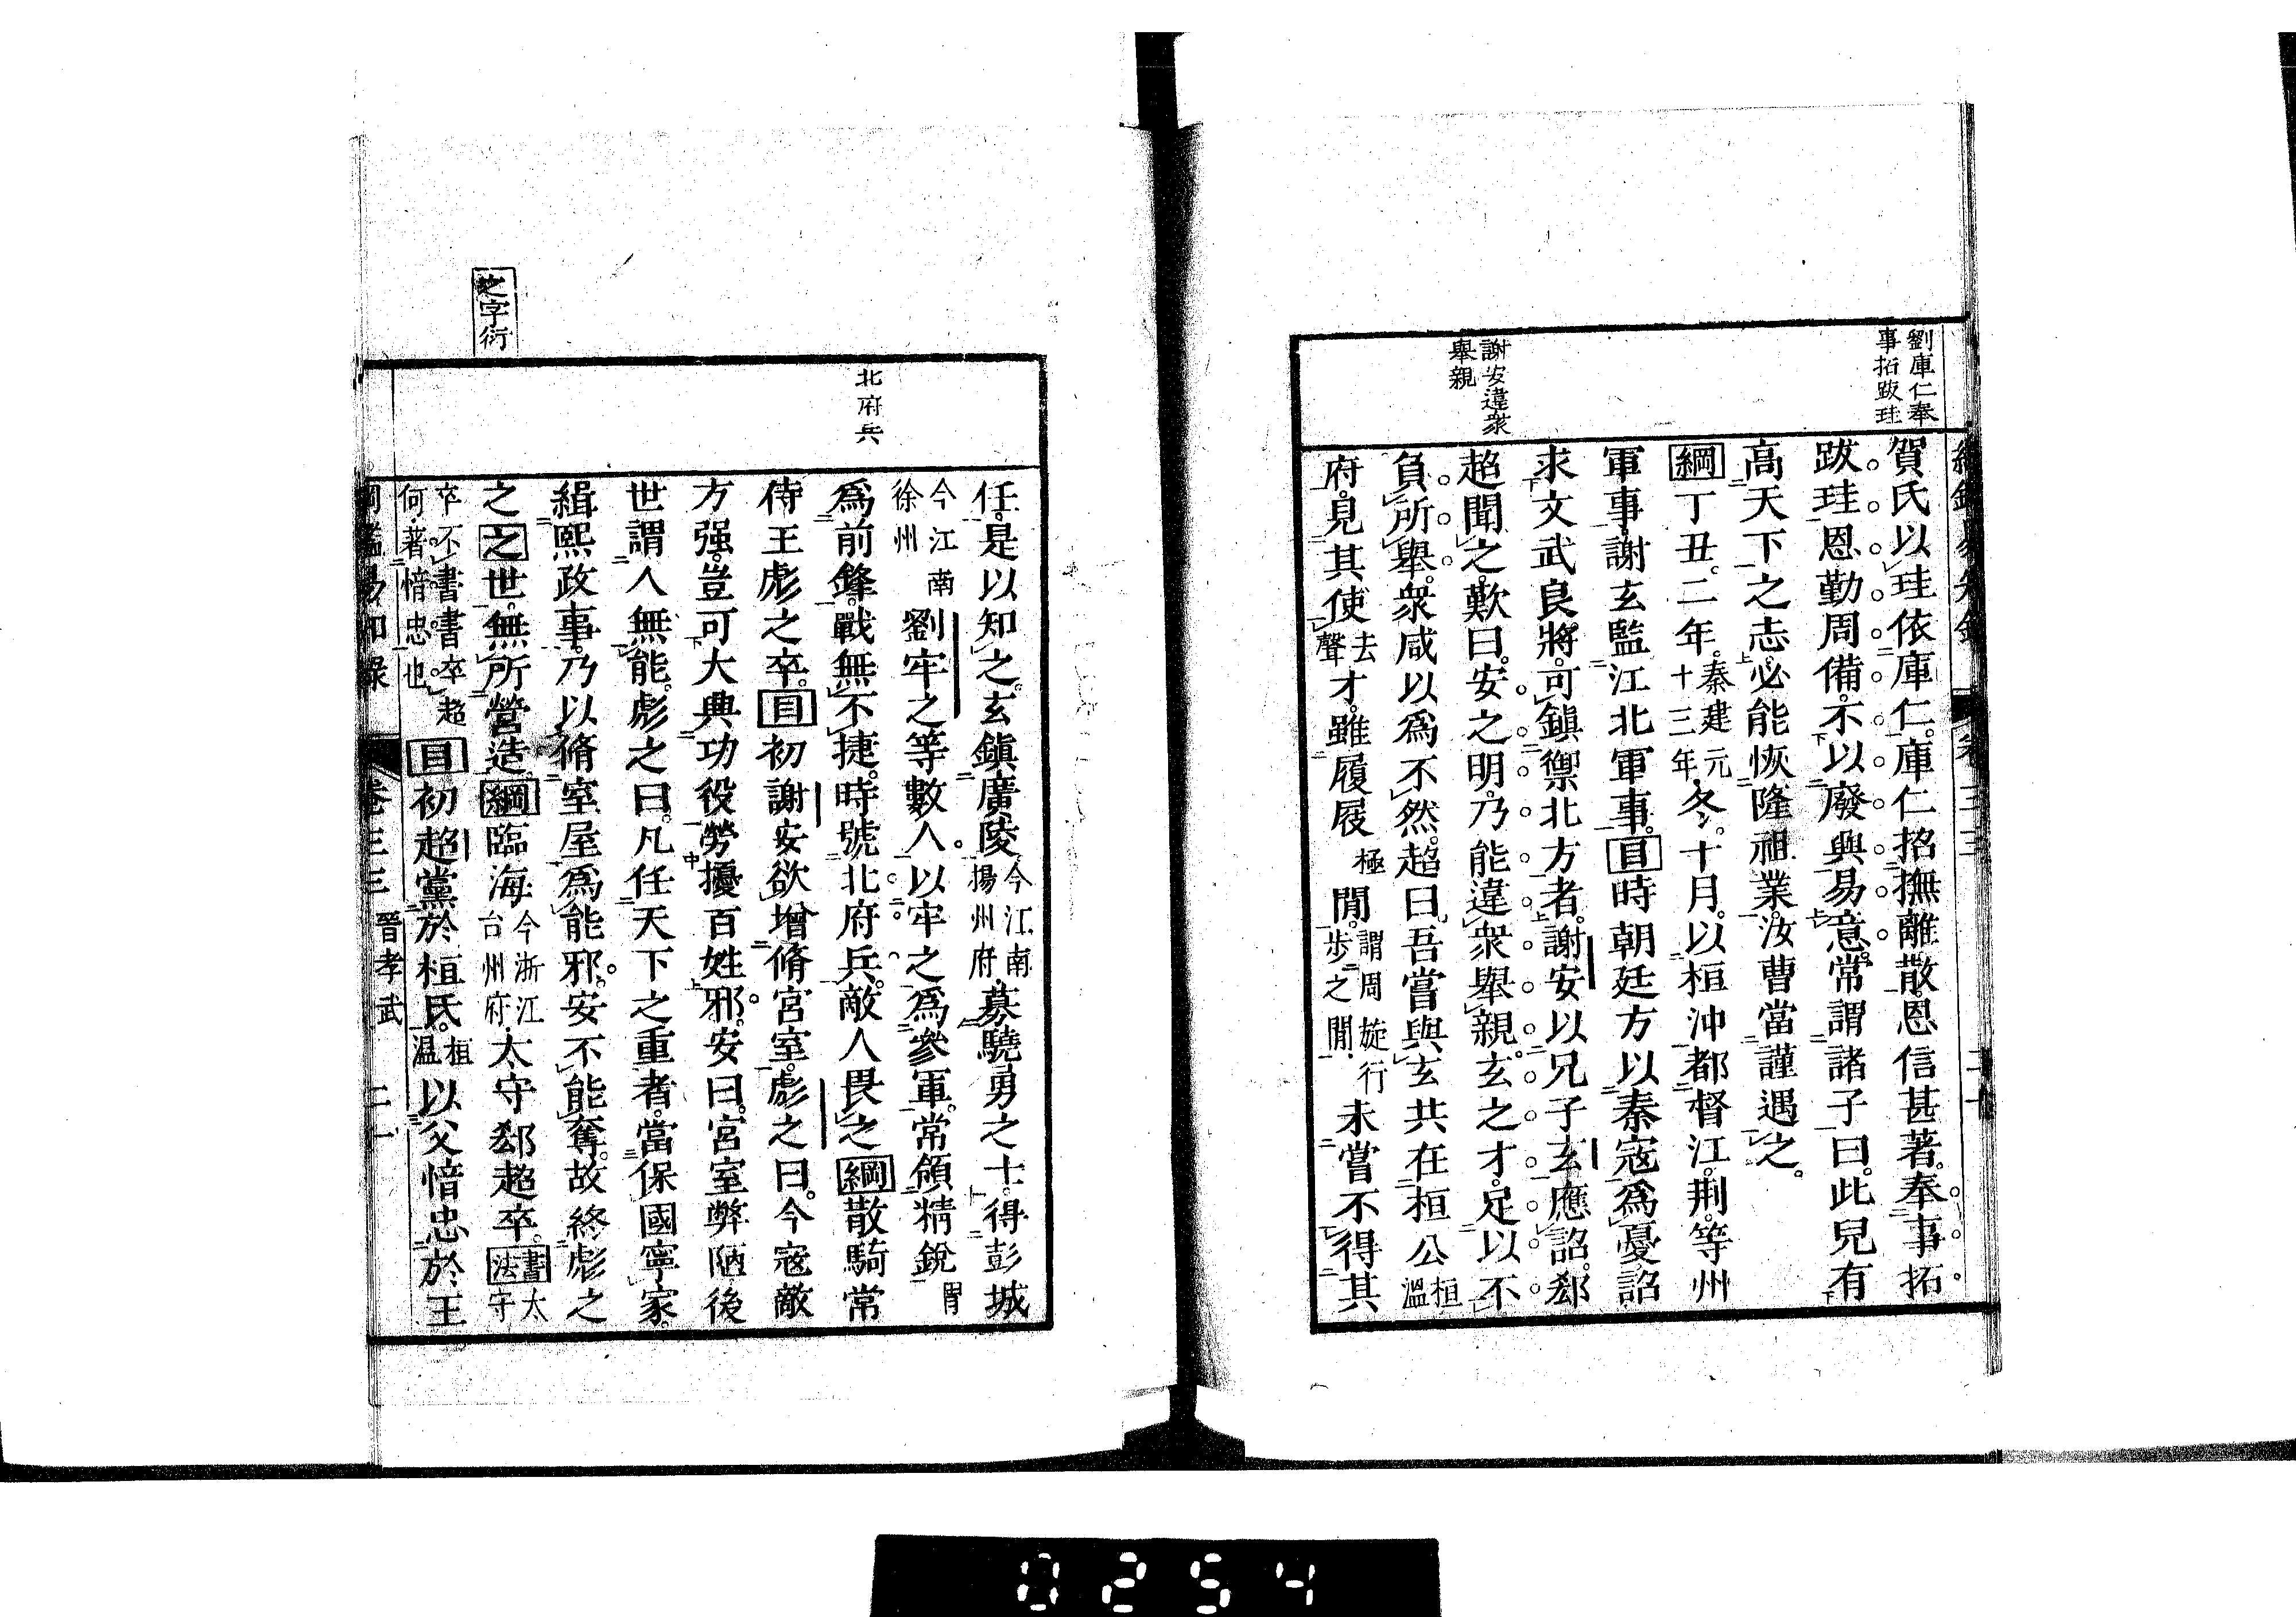 劉庫仁奉
事拓跋珪
賀氏以珪依庫仁。庫仁招撫離散。恩信甚著。奉事拓
跋珪恩勤周備。不以廢興易意。常謂諸子曰。此兒有
高天下之志。必能恢隆祖業。汝曹當謹遇之。
綱丁丑。二年。秦建元十三年。冬。十月。以桓沖都督江。荆。等州
軍事。謝玄監江北軍事。目時朝廷方以秦寇爲憂。詔
求文武良將。可鎭禦北方者。謝安以兄子玄應詔。郄
謝安違衆
舉親
超聞之。歎曰。安之明。乃能違衆舉親。玄之才。足以不
負所舉。衆咸以爲不然。超曰。吾嘗與玄共在桓公桓溫
府。見其使去聲才。雖履屐極閒。謂周旋行步之閒。未嘗不得其
任。是以知之。玄鎭廣陵今江南揚州府。募驍勇之士。得彭城
今江南徐州劉牢之等數人。以牢之爲參軍。常領精銳胃
北府兵
爲前鋒。戰無不捷。時號北府兵。敵人畏之綱散騎常
侍王彪之卒。目初謝安欲增脩宮室。彪之曰。今寇敵
方强。豈可大興功役勞擾百姓邪。安曰。宮室弊陋後
世謂人無能。彪之曰。凡任天下之重者。當保國寧家。
緝熙政事。乃以脩室屋爲能邪。安不能奪。故終彪之
之字衍
之之世。無所營造。綱臨海今浙江台州府。太守郄超卒。書法太守
卒不書書卒超何。著愔忠也。目初超黨於桓氏。桓溫以父愔忠於王
綱鑑易知錄 卷三三 晉孝武 二一
0254